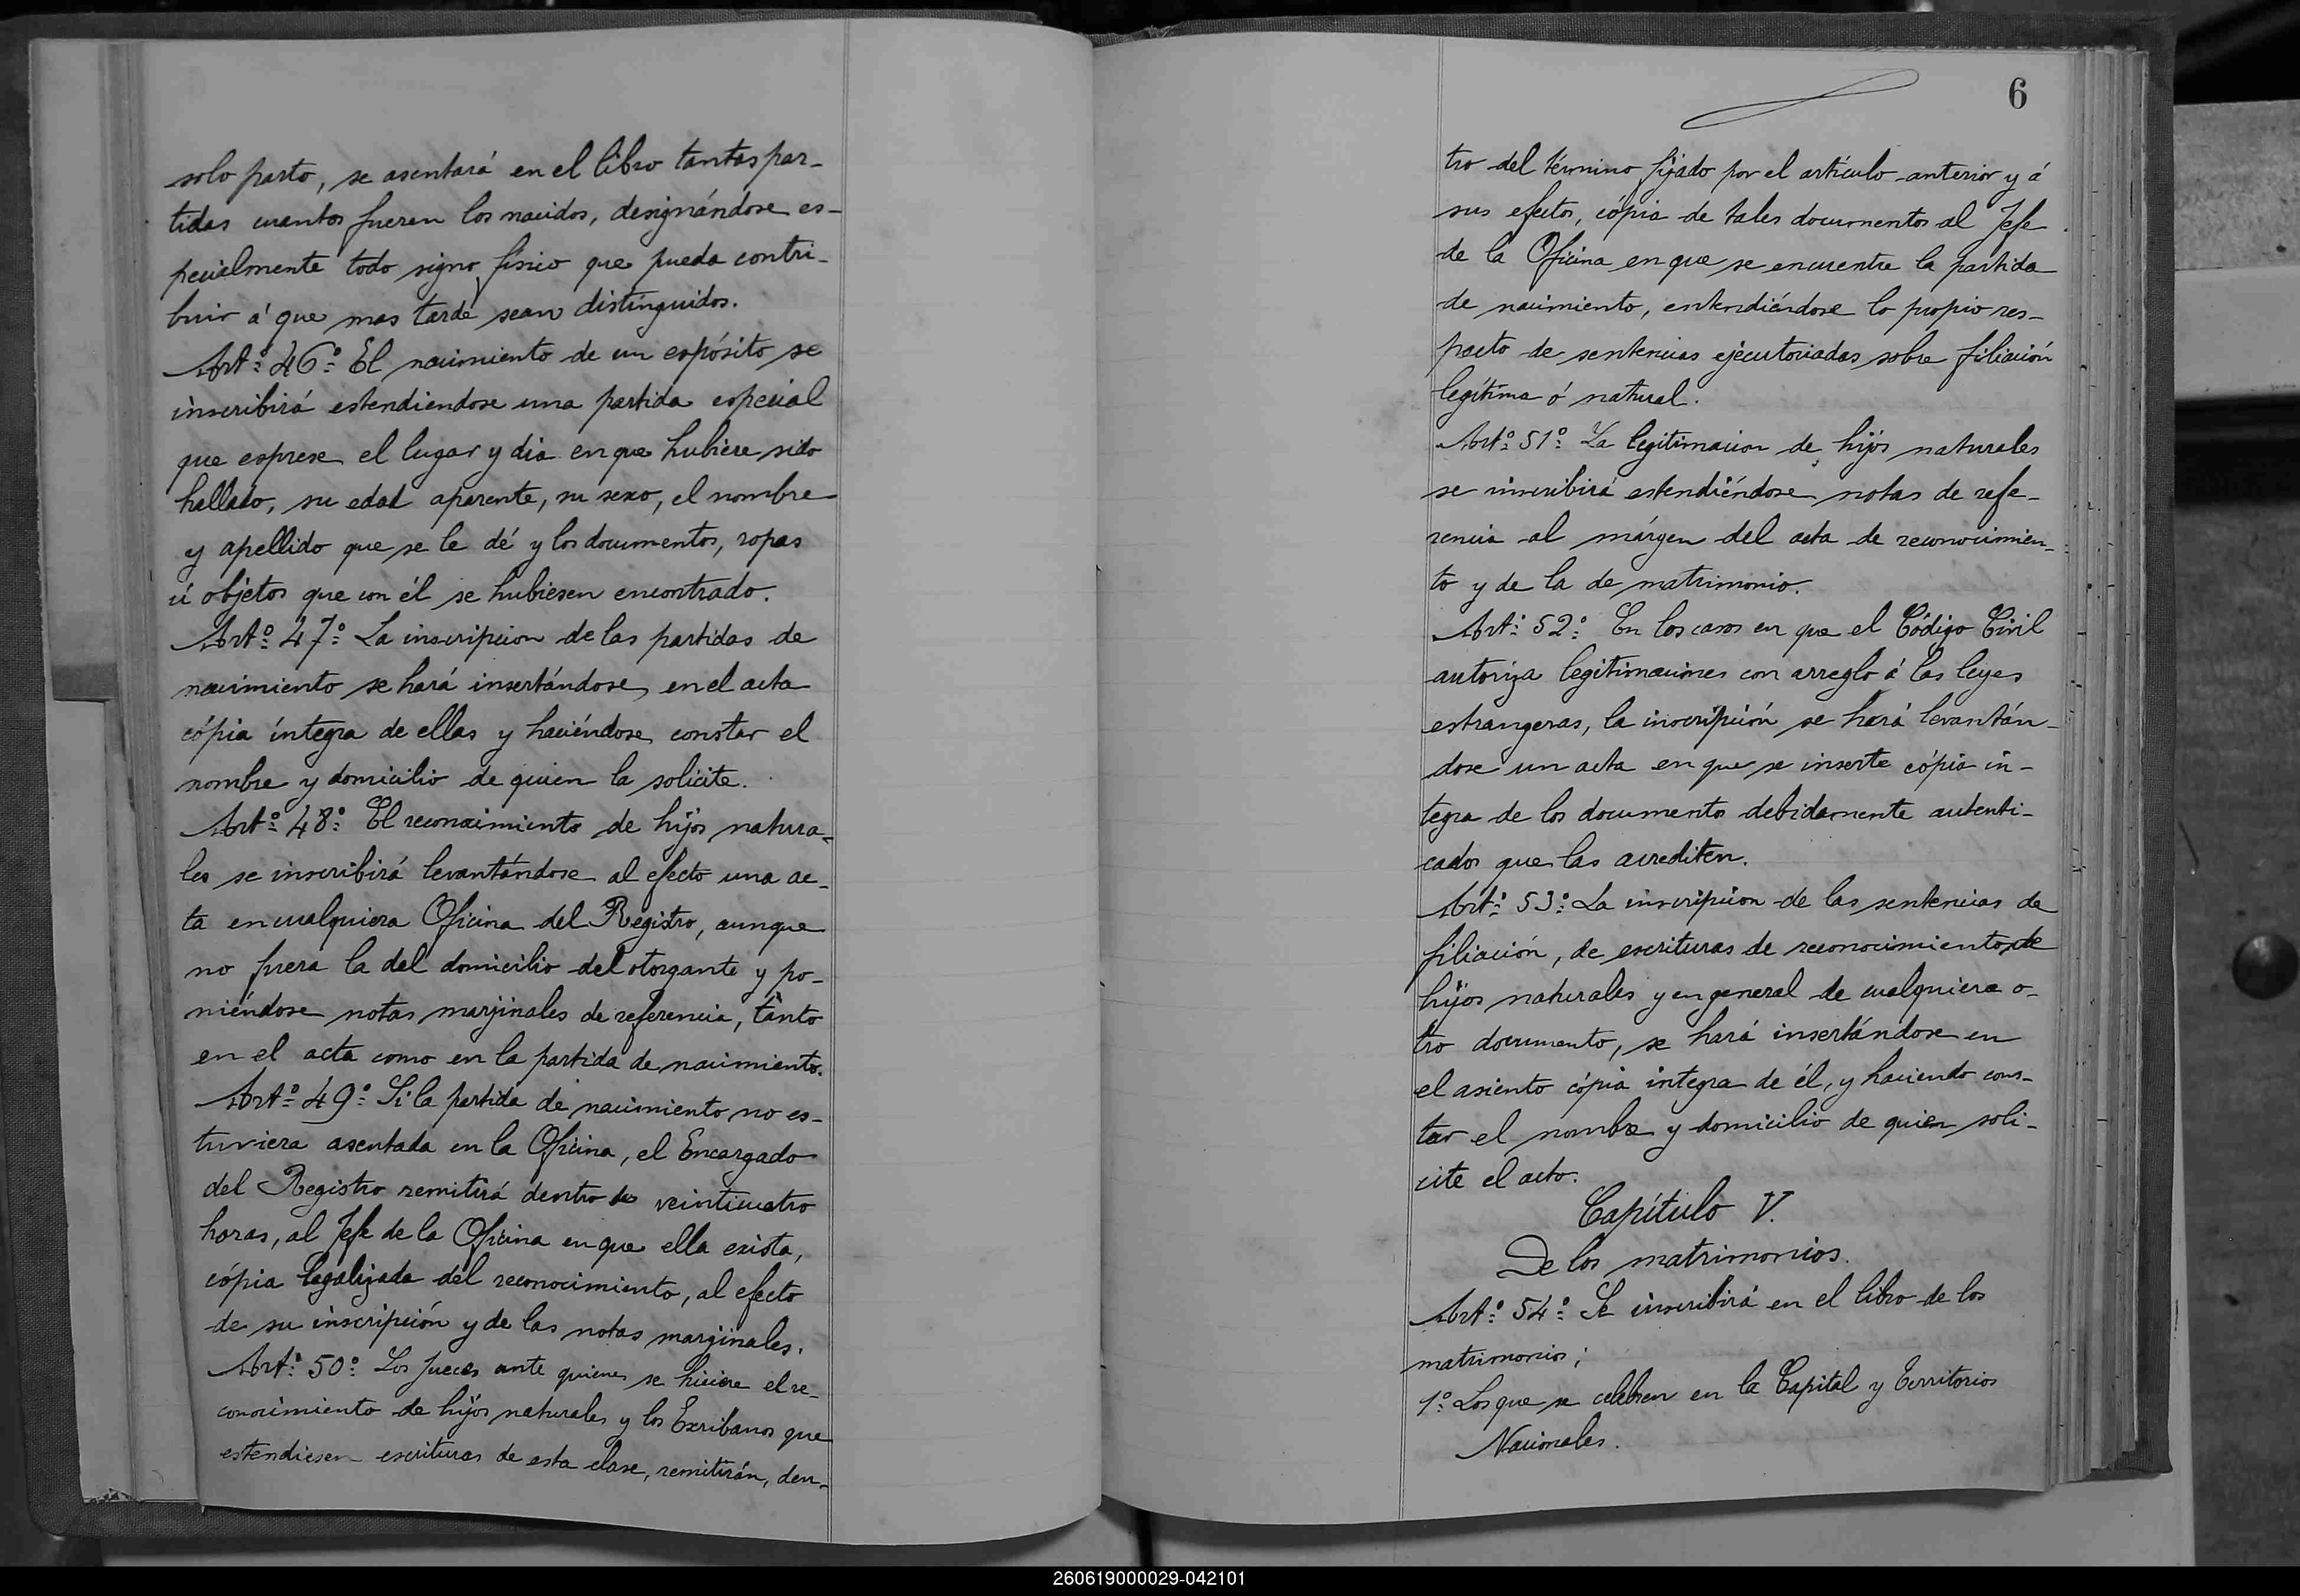 solo parto, se asentará en el libro tantas par-
tidas cuantos fueren los nacidos, designándose es-
pecialmente todo signo físico que pueda contri-
buir á que mas tarde sean distinguidos.
Artº 46º El nacimiento de un espósito se
inscribirá estendiendose una partida especial
que esprese el lugar y dia en que hubiere sido
hallado, su edad aparente, su sexo, el nombre
y apellido que se le dé y los documentos, ropas
ú objetos que con él se hubiesen encontrado.
Artº 47º La inscripcion de las partidas de
nacimiento se hará insertándose en el acta
cópia íntegra de ellas y haciéndose constar el
nombre y domicilio de quien la solicite.
Artº 48º El reconocimiento de hijos natura-
les se inscribirá levantándose al efecto una ac-
ta en cualquiera Oficina del Registro, aunque
no fuera la del domicilio del otorgante y po-
niéndose notas marjinales de referencia, tanto
en el acta como en la partida de nacimiento.
Artº 49º Si la partida de nacimiento no es-
tuviera asentada en la Oficina, el Encargado
del Registro remitirá dentro de veinticuatro
horas, al Jefe de la Oficina en que ella exista,
cópia legalizada del reconocimiento, al efecto
de su inscripción y de las notas marjinales.
Artº 50º Los jueces ante quienes se hiciere el re-
conocimiento de hijos naturales y los Escribanos que
estendiesen escrituras de esta clase, remitirán, den-
6
tro del término fijado por el artículo anterior y á
sus efectos, cópia de tales documentos al Jefe
de la Oficina en que se encuentre la partida
de nacimiento, entendiéndose lo propio res-
pecto de sentencias ejecutoriadas sobre filiación
legítima ó natural.
Artº 51º La legitimacion de hijos naturales
se inscribirá estendiéndose notas de refe-
rencia al márgen del acta de reconocimien-
to y de la de matrimonio.
Artº 52º En los casos en que el Código Civil
autoriza legitimaciones con arreglo á las leyes
estrangeras, la inscripción se hará levantán-
dose un acta en que se inserte cópia ín-
tegra de los documentos debidamente autenti-
cados que las acrediten.
Artº 53º La inscripcion de las sentencias de
filiación, de escrituras de reconocimiento de
hijos naturales y en general de cualquiera o-
tro documento, se hará insertándose en
el asiento cópia íntegra de él, y haciendo cons-
tar el nombre y domicilio de quien soli-
cite el acto.
Capítulo V.
De los matrimonios.
Artº 54º Se inscribirá en el libro de los
matrimonios;
1º Los que se celebren en la Capital y Territorios
Nacionales.
260619000029-042101